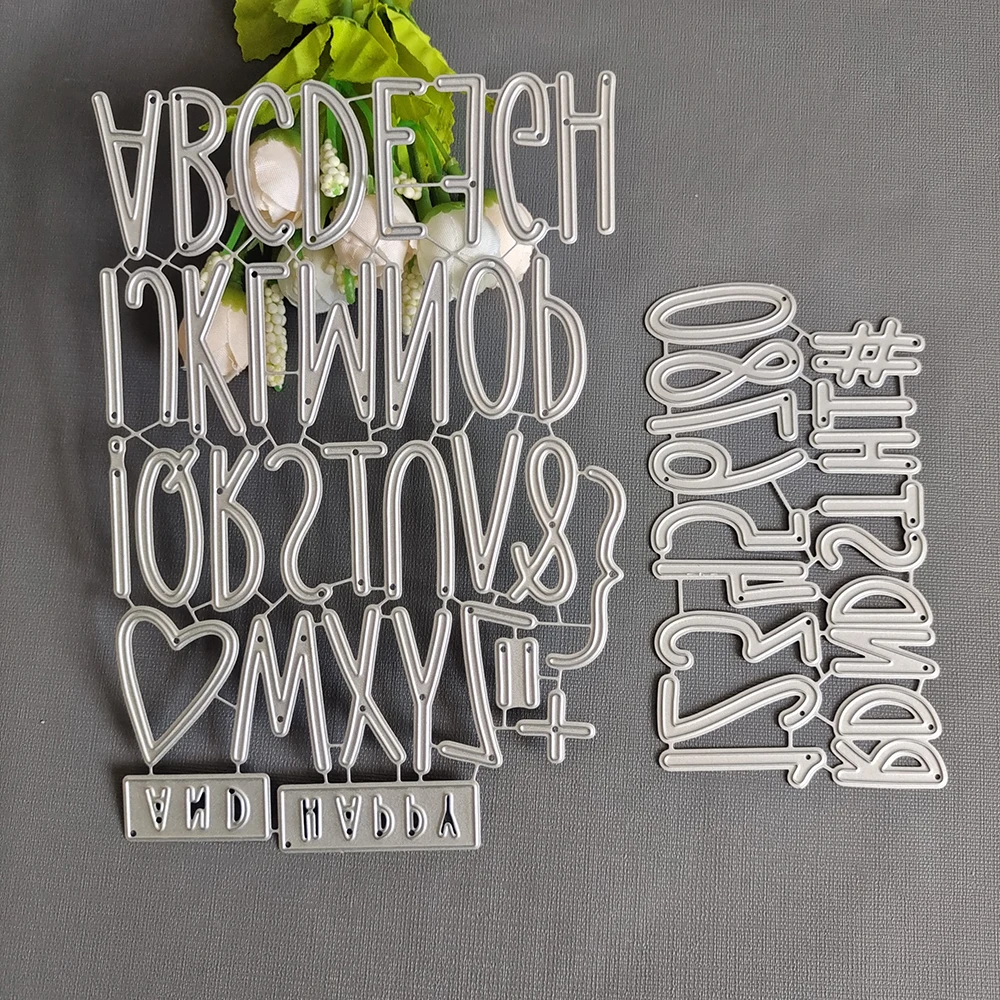 ABCDEFGH
IJKLMNOP
!QRSTUV&}
WXYZ=+
AND HAPPY
123456780
RDNDSTTH#